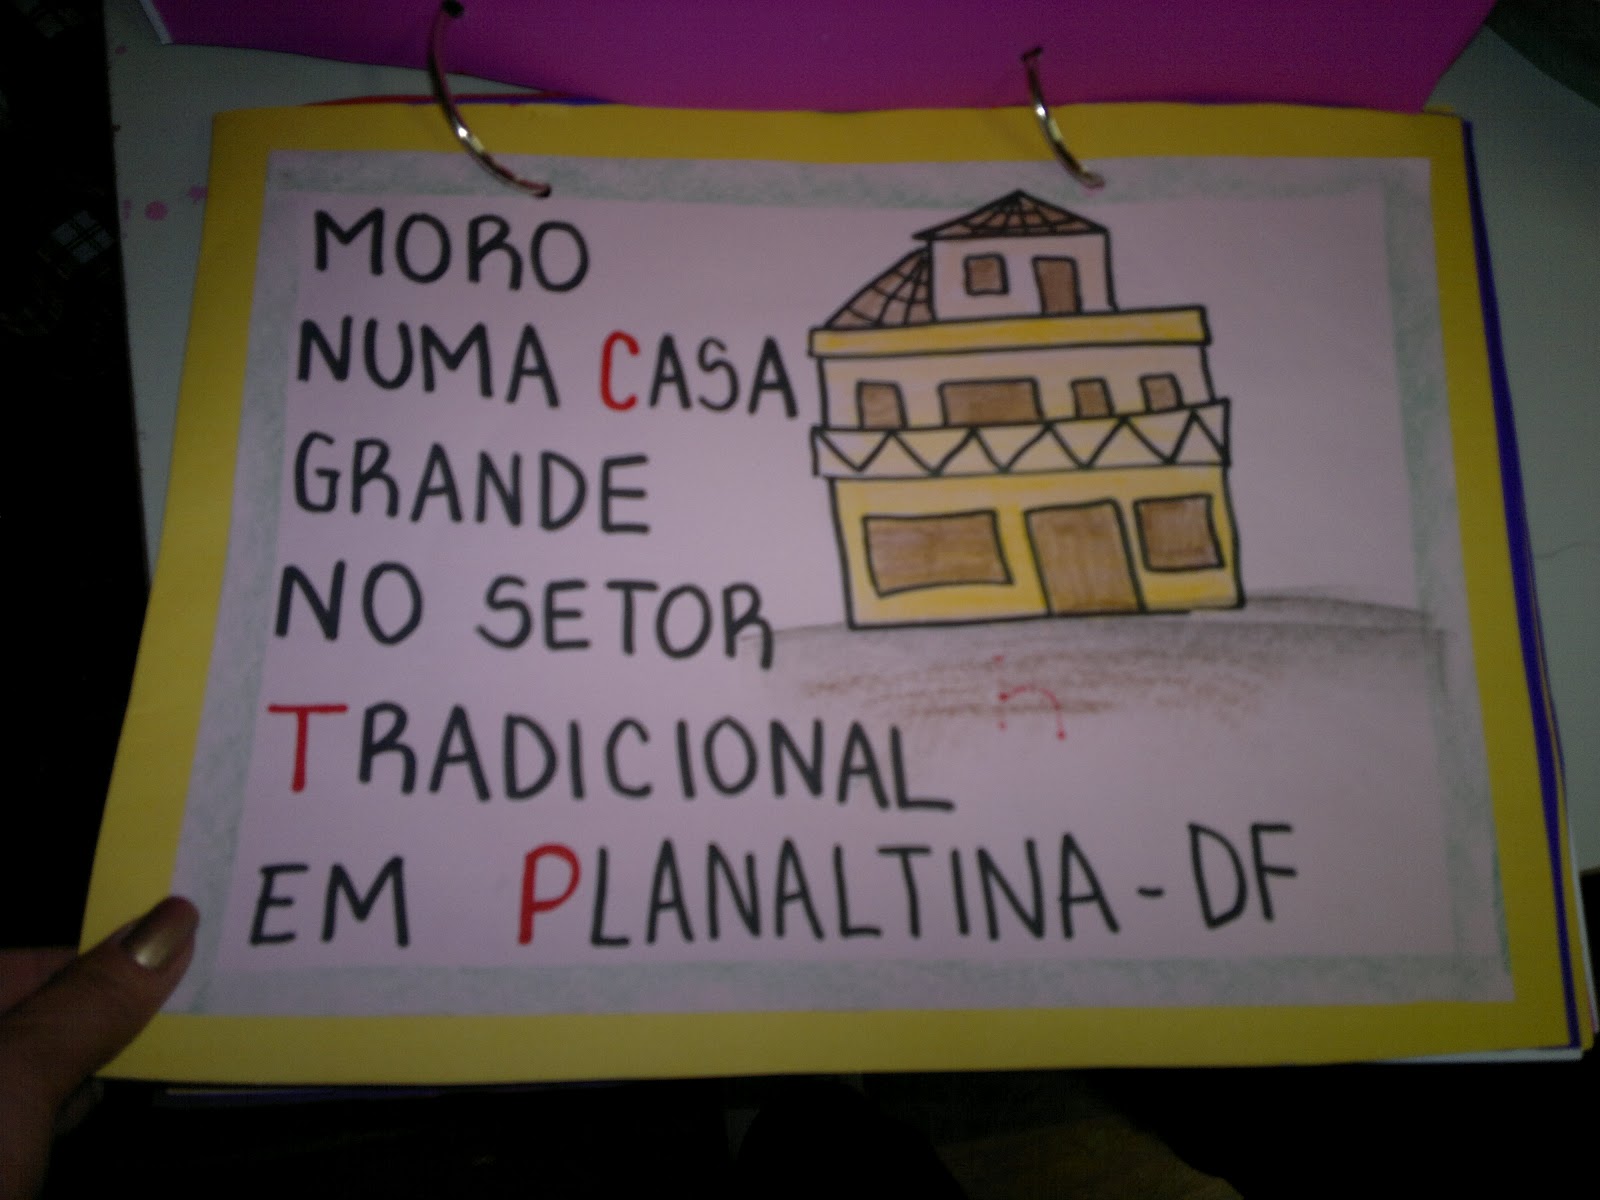 MORO
NUMA CASA
GRANDE
NO SETOR
TRADICIONAL
EM PLANALTINA-DF